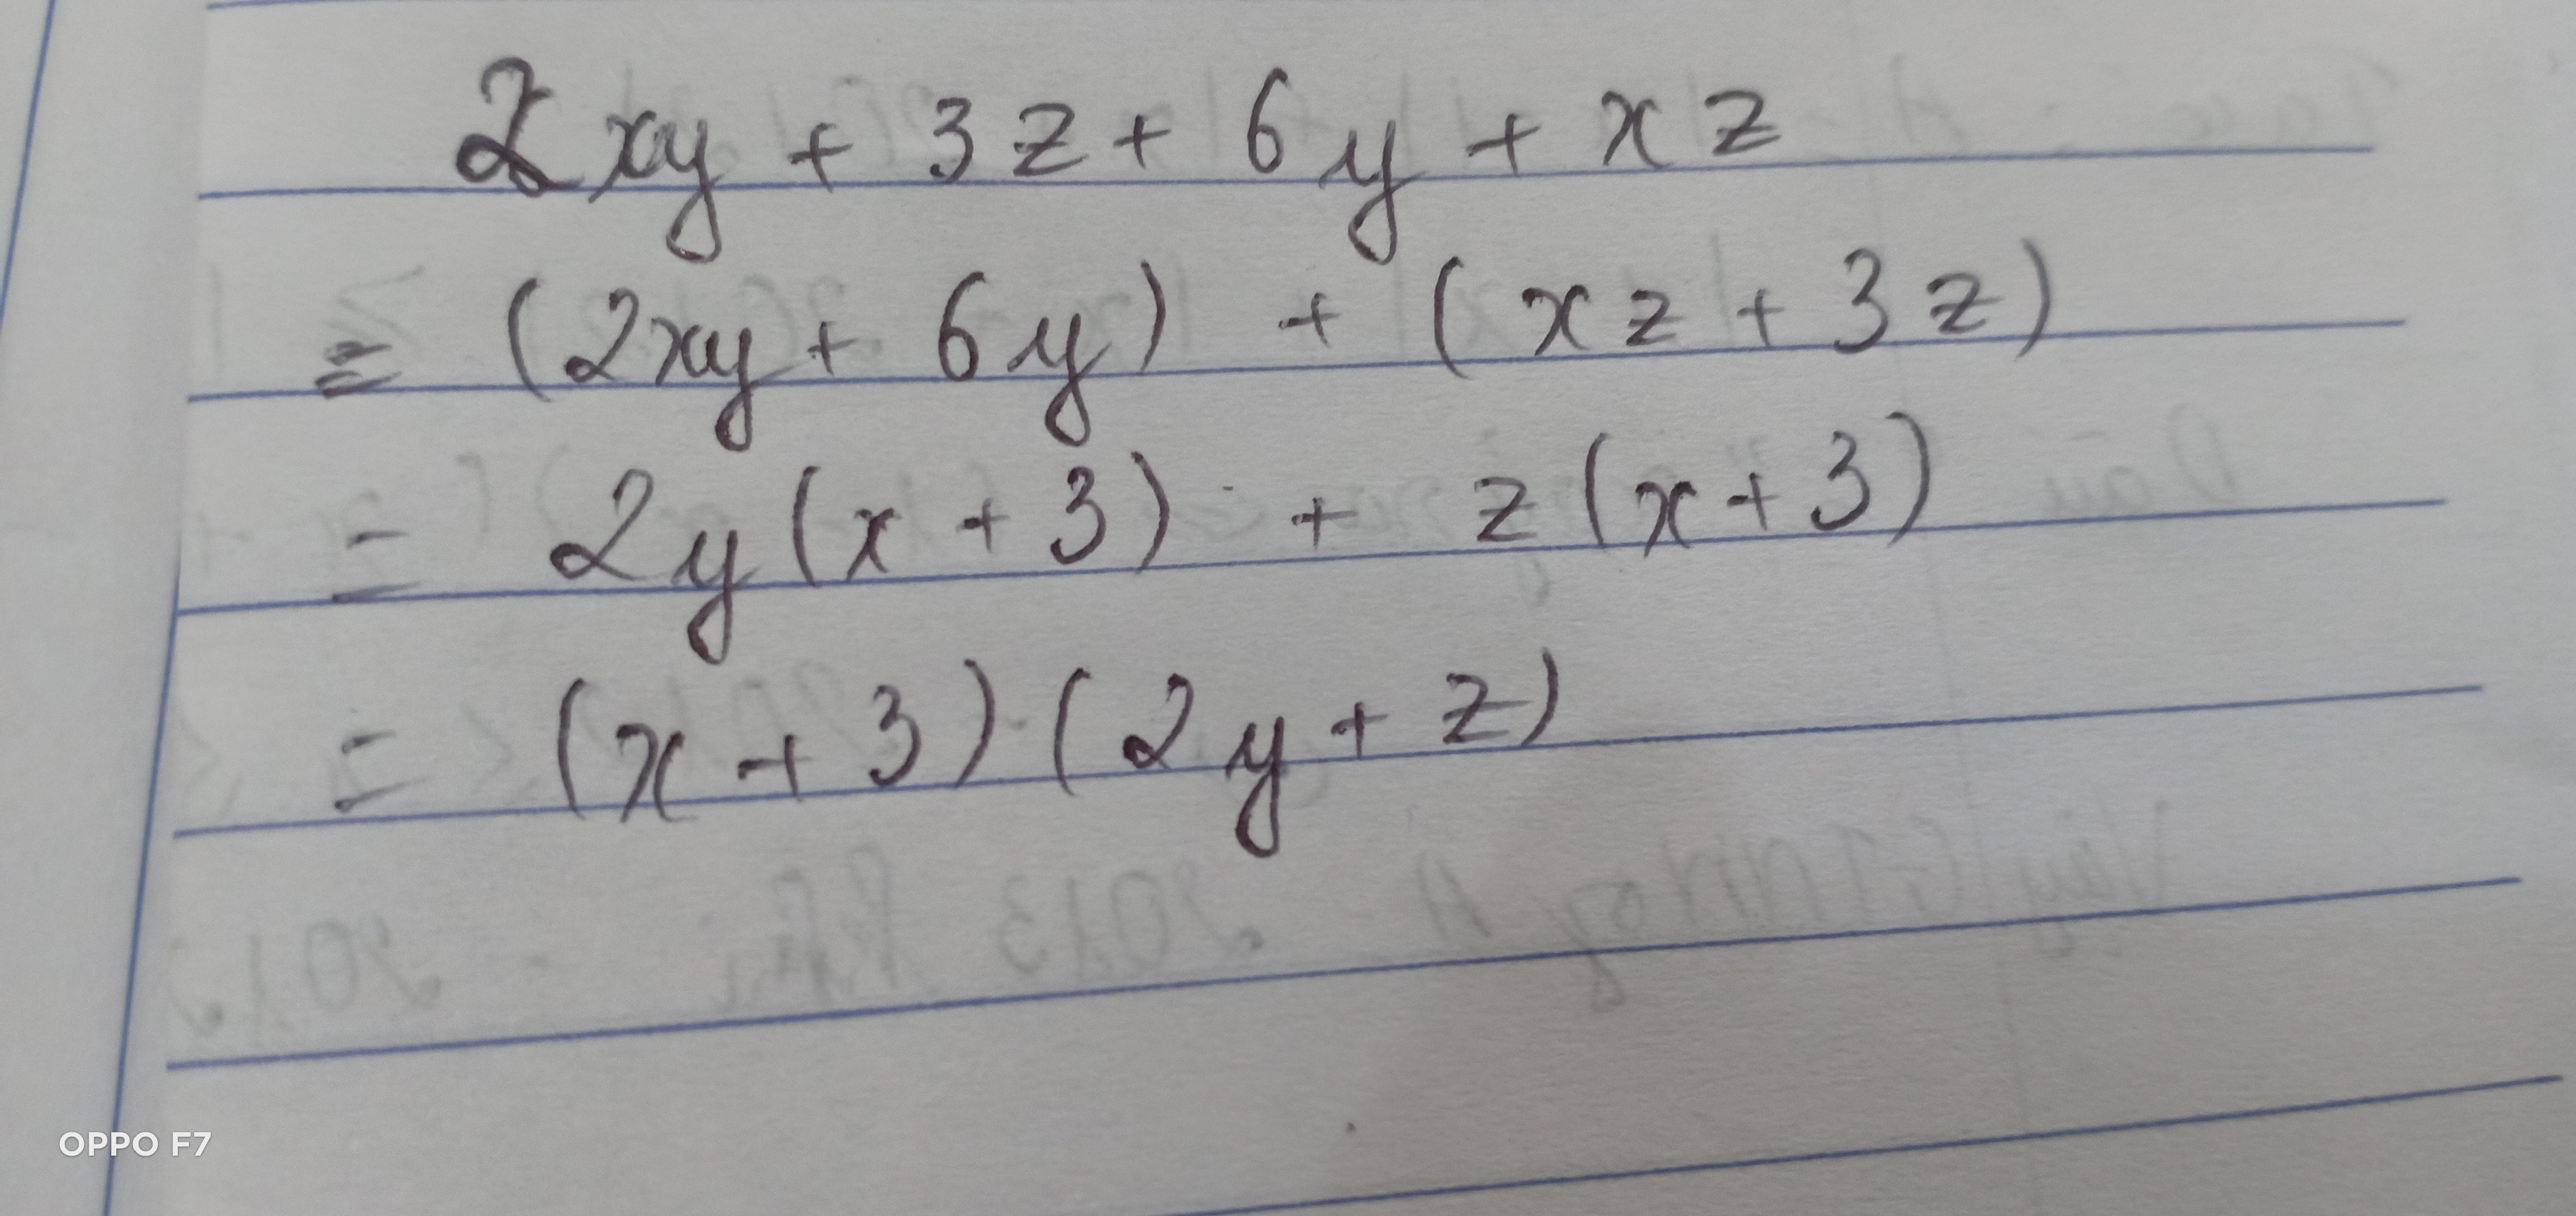 2xy + 3z + 6y + xz
= (2xy + 6y) + (xz + 3z)
= 2y(x + 3) + z(x + 3)
= (x + 3)(2y + z)
OPPO F7